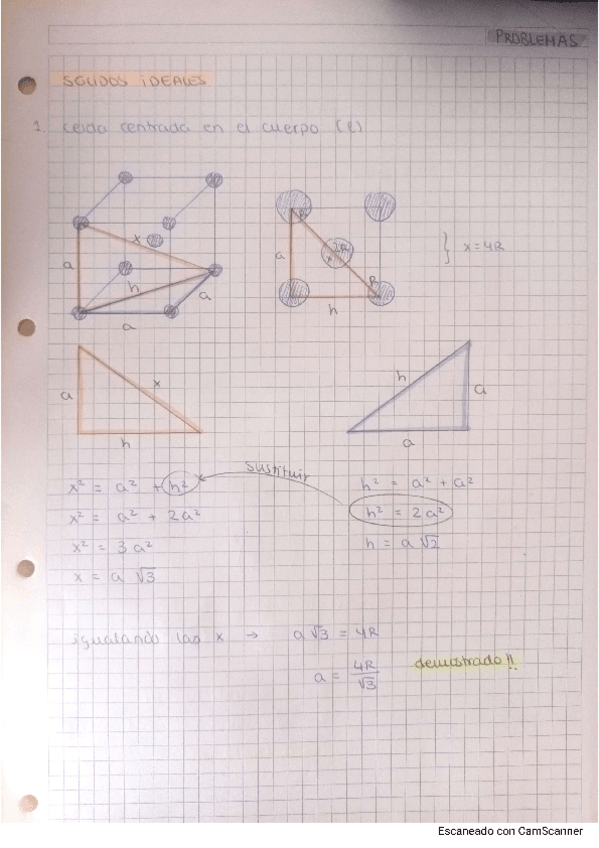 PROBLEMAS
SOLIDOS iDEALES
1. Celda centrada en el cuerpo (I)
x
a
h
a
a
R
2R
x
a
R
h
} x = 4R
a
x
h
h
a
a
sustituir
x² = a² + h²
h² = a² + a²
x² = a² + 2a²
h² = 2a²
x² = 3a²
h = a √2
x = a √3
igualando las x → a √3 = 4R
a = 4R/√3 demostrado!!
Escaneado con CamScanner